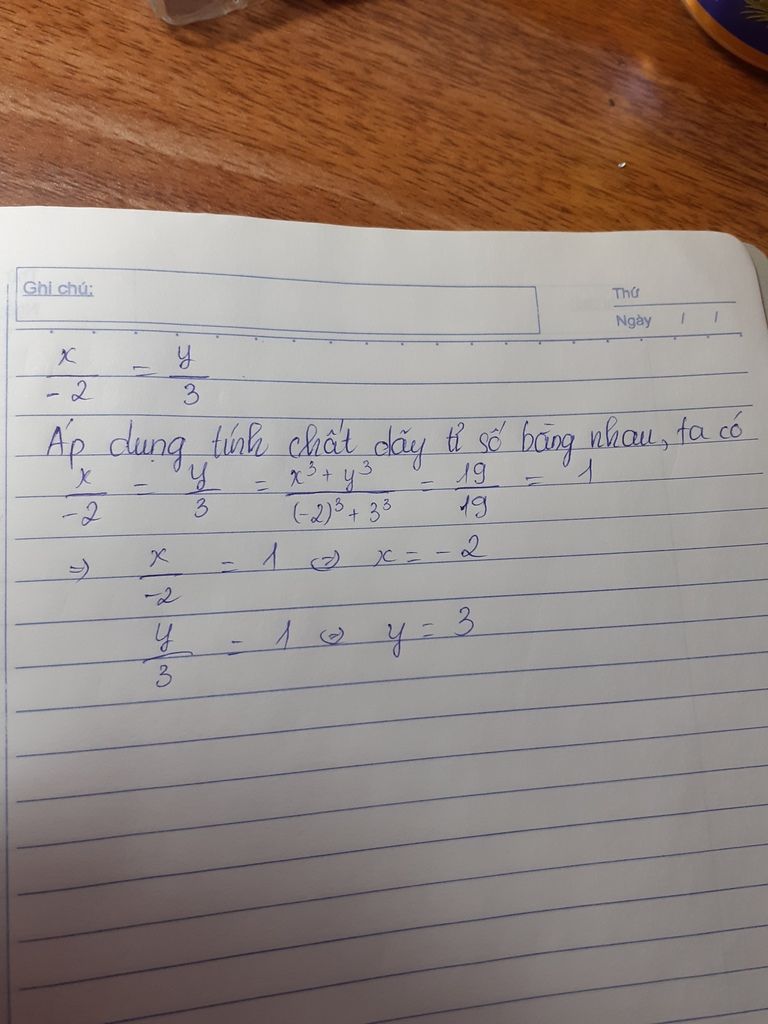 Ghi chú:
Thứ
Ngày / /
x/-2 = y/3
Áp dụng tính chất dãy tỉ số bằng nhau, ta có
x/-2 = y/3 = (x³ + y³)/((-2)³ + 3³) = 19/19 = 1
⇒ x/-2 = 1 ⇔ x = -2
y/3 = 1 ⇔ y = 3